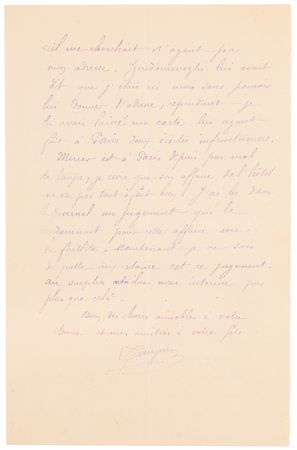 il me cherchait n'ayant pas
mon adresse. lui avait
dit que j'étais ici mais sans pouvoir
lui donner l'adresse, cependant je
lui avais laissé ma carte, lui ayant
fait à Paris deux visites infructueuses.
Mercier est à Paris depuis pas mal
de temps, je crois que son affaire de l'hôtel
ne va pas tout à fait bien. J'ai lu dans
le journal un jugement qui le
pour cette affaire avec
la faillite. Maintenant je ne sais
de quelle importance est ce jugement.
plus que cela.
Bien des choses aimables à votre
dame et mes amitiés à votre fils.